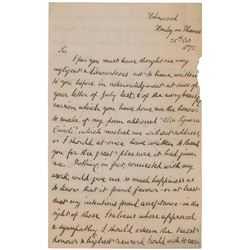 Holmwood
Henley on Thames
25th Oct
1872
Sir
I fear you must have thought me very
negligent & discourteous not to have written
to you before in acknowledgment at once of
your letter of July 31st, & of the very beautiful
version which you have done me the honour
to make of my poem addressed 'Alla Signora
Cairoli', which reached me without address,
or I should at once have written to thank
you for the great pleasure it had given
me. Nothing, in fact, connected with my
work, could give me so much happiness as
to know that it found favour - or at least
that my intentions found acceptance - in the
sight of those Italians whose approval
& sympathy I should esteem the truest
honour & highest reward I could wish to earn